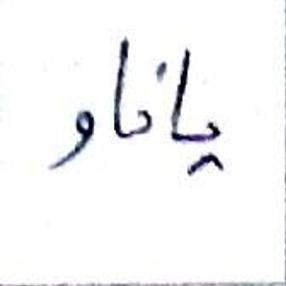 پاناو